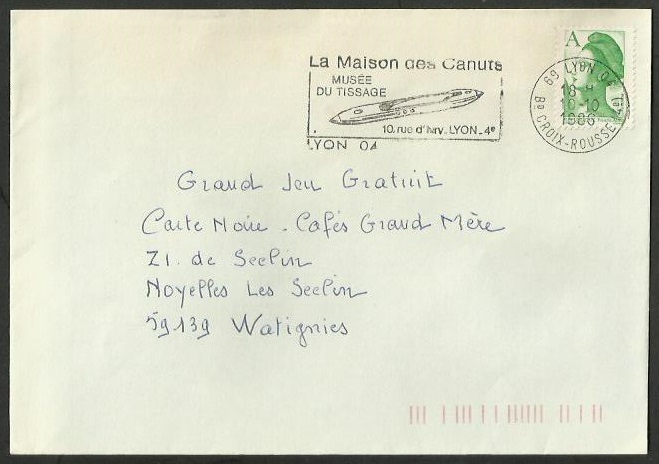 La Maison des Canuts
MUSÉE
DU TISSAGE
10, rue d'Ivry_LYON_4e
LYON 04
A
69 LYON 04
18 H
10-10
1986
Bd CROIX-ROUSSE (4e)
Grand Jeu Gratuit
Carte Noire - Cafés Grand Mère
ZI. de Seclin
Noyelles Les Seclin
59139 Watignies